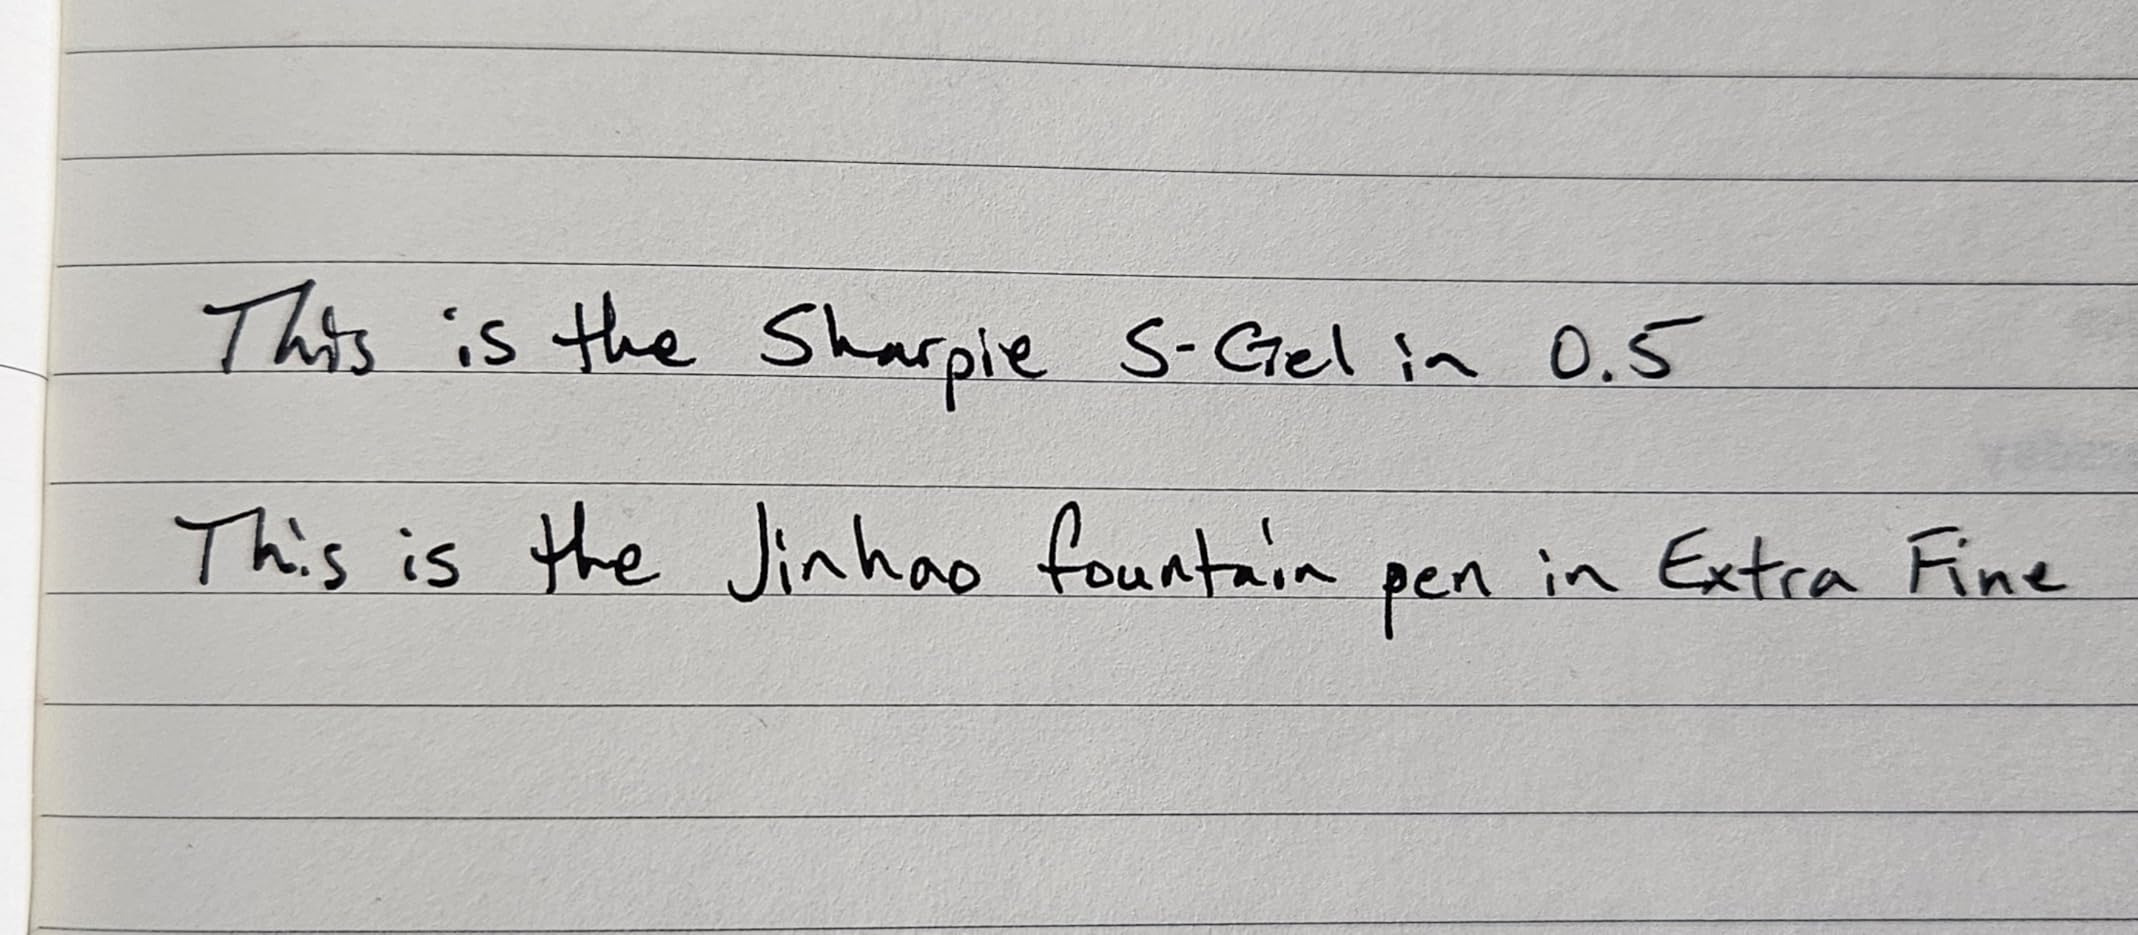 This is the Sharpie S-Gel in 0.5
This is the Jinhao fountain pen in Extra Fine